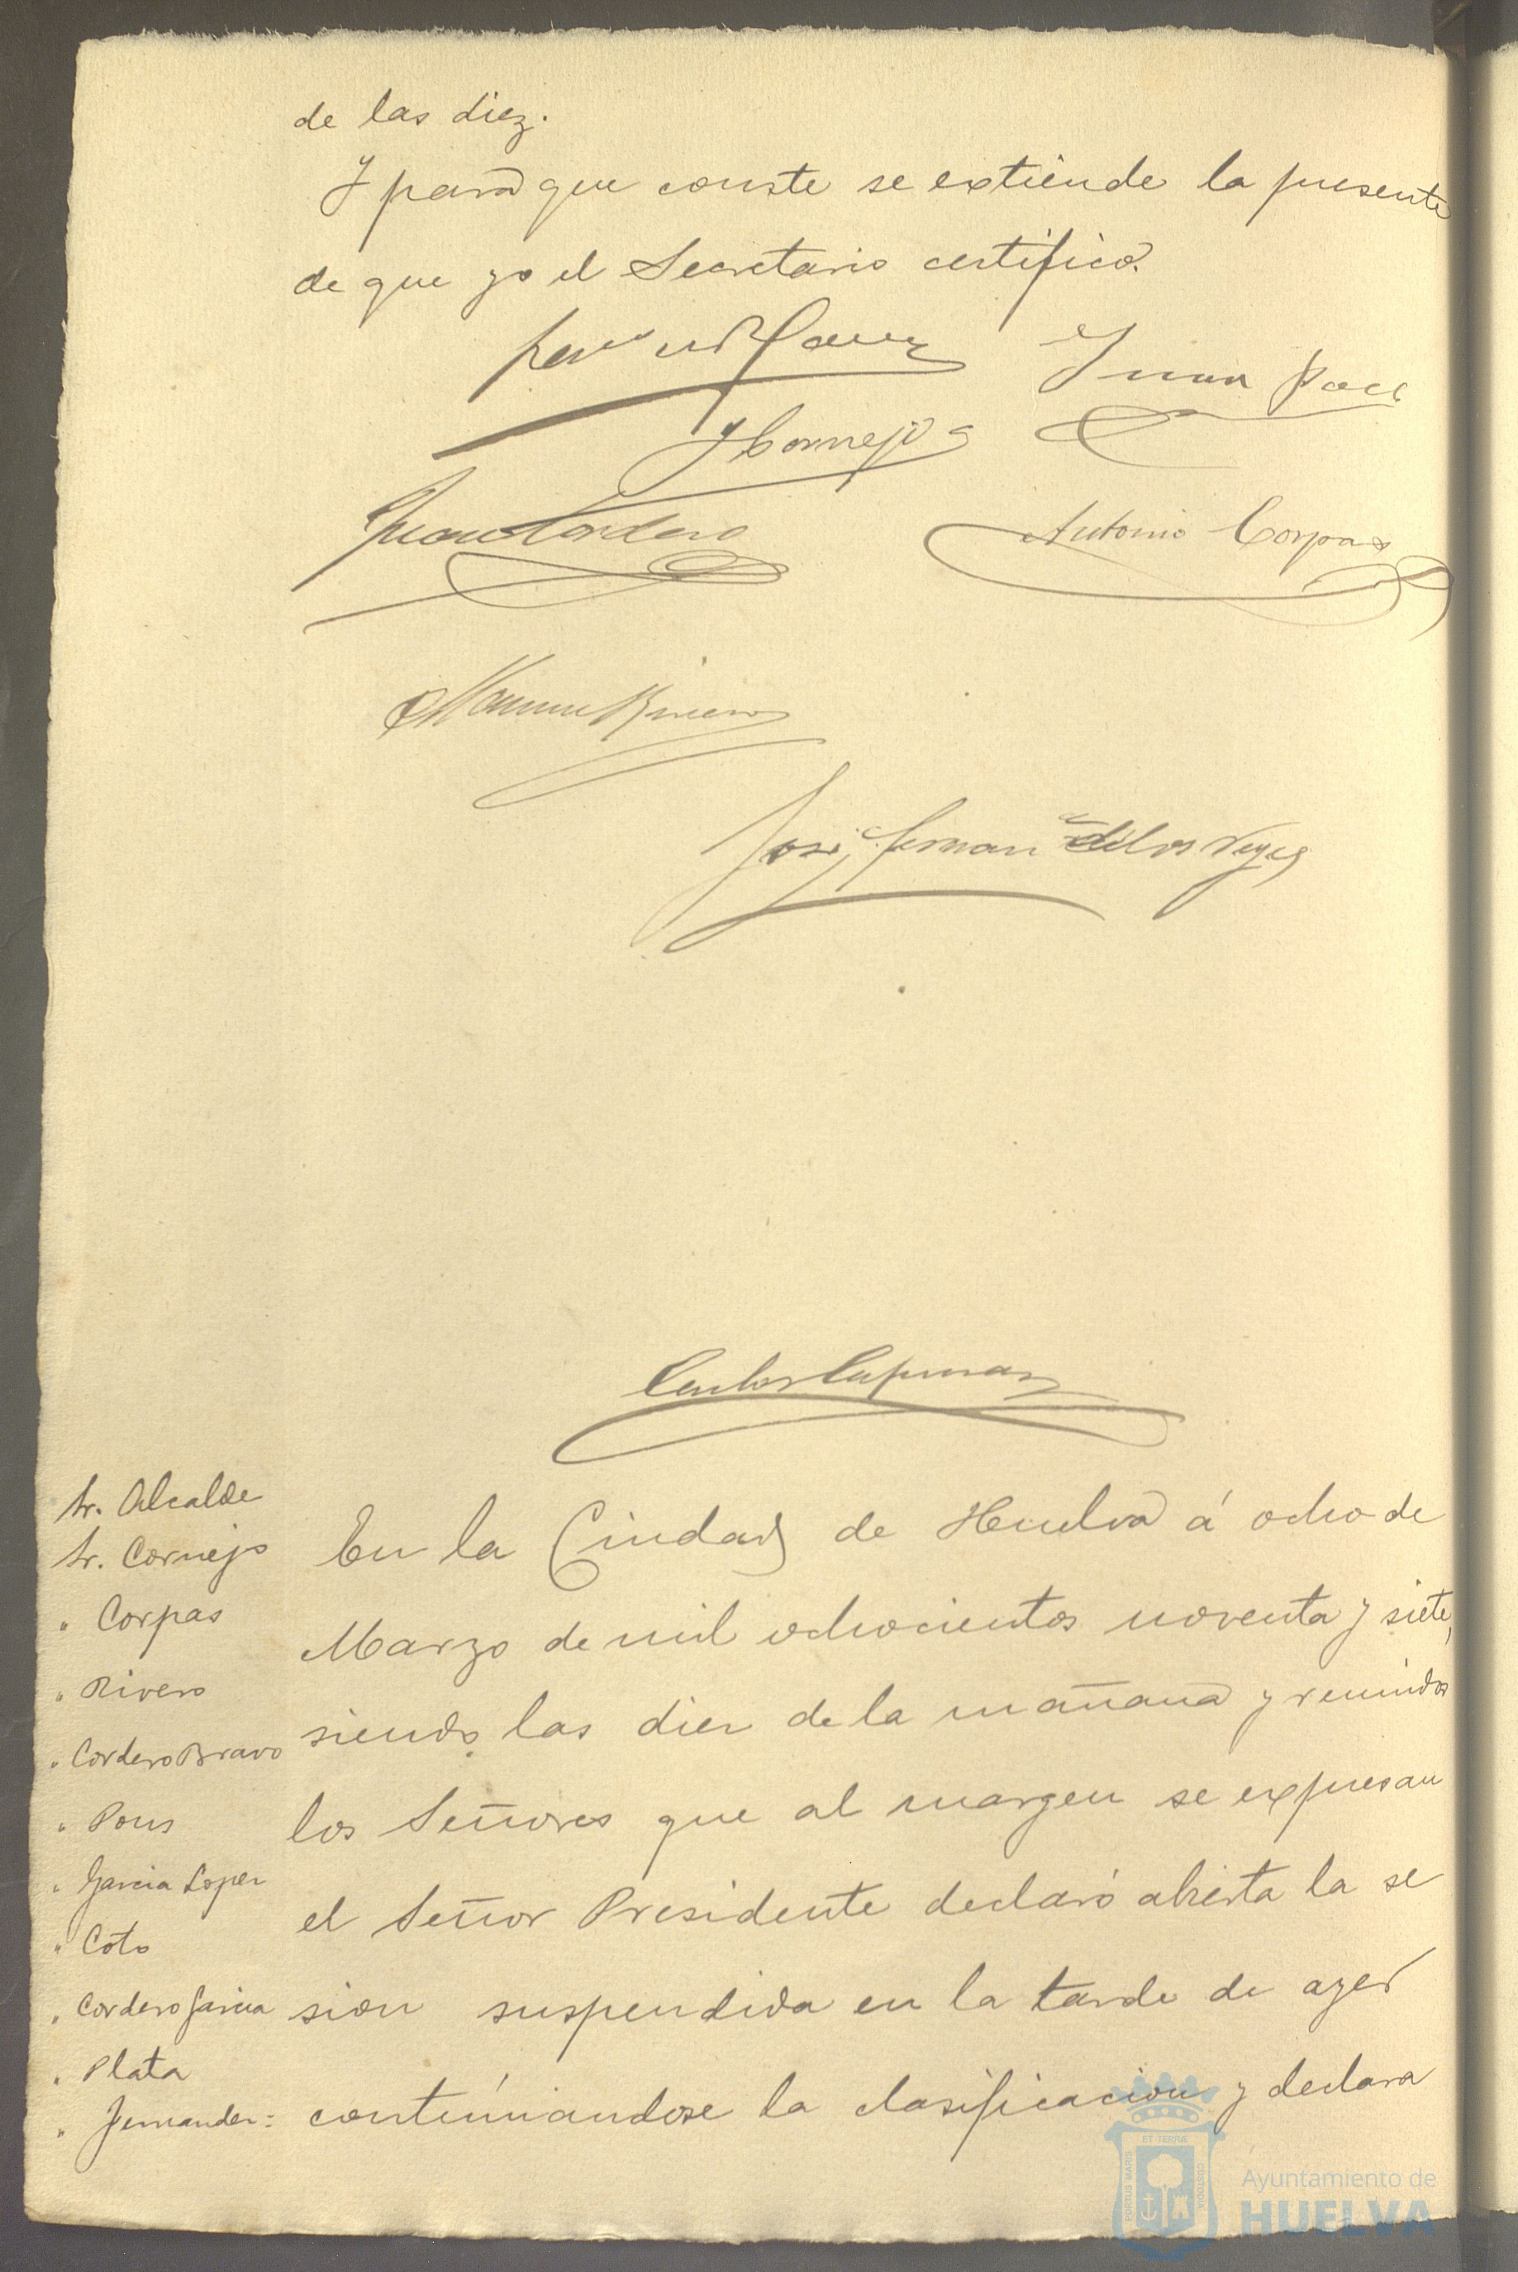 de las diez.
Y para que conste se extiende la presente
de que yo el Secretario certifico.
Juan
J Cornejo
Juan Cordero
Antonio Corpas
Manuel Rivero
José Fernan de los Reyes
Sr. Alcalde
Sr. Cornejo
" Corpas
" Rivero
" Cordero Bravo
" Pons
" Garcia Lopez
" Coto
" Cordero Garcia
" Plata
" Fernandez =
En la Ciudad de Huelva á ocho de
Marzo de mil ochocientos noventa y siete,
siendo las diez de la mañana y reunidos
los Señores que al margen se expresan
el Señor Presidente declaró abierta la se
sion suspendida en la tarde de ayer
continúandose la clasificacion y declara
PORTUS MARIS
ET TERRÆ
CUSTODIA
Ayuntamiento de
HUELVA